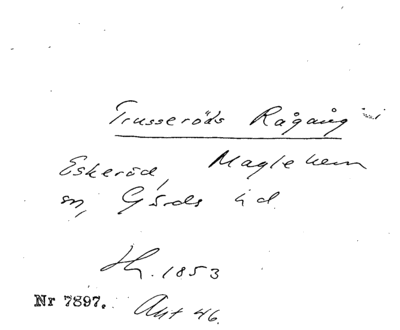 Trusseröds Rågång
Eskeröd, Maglehem
sn, Gärds hd.
Hh. 1853
Nr 7897. Akt 46.